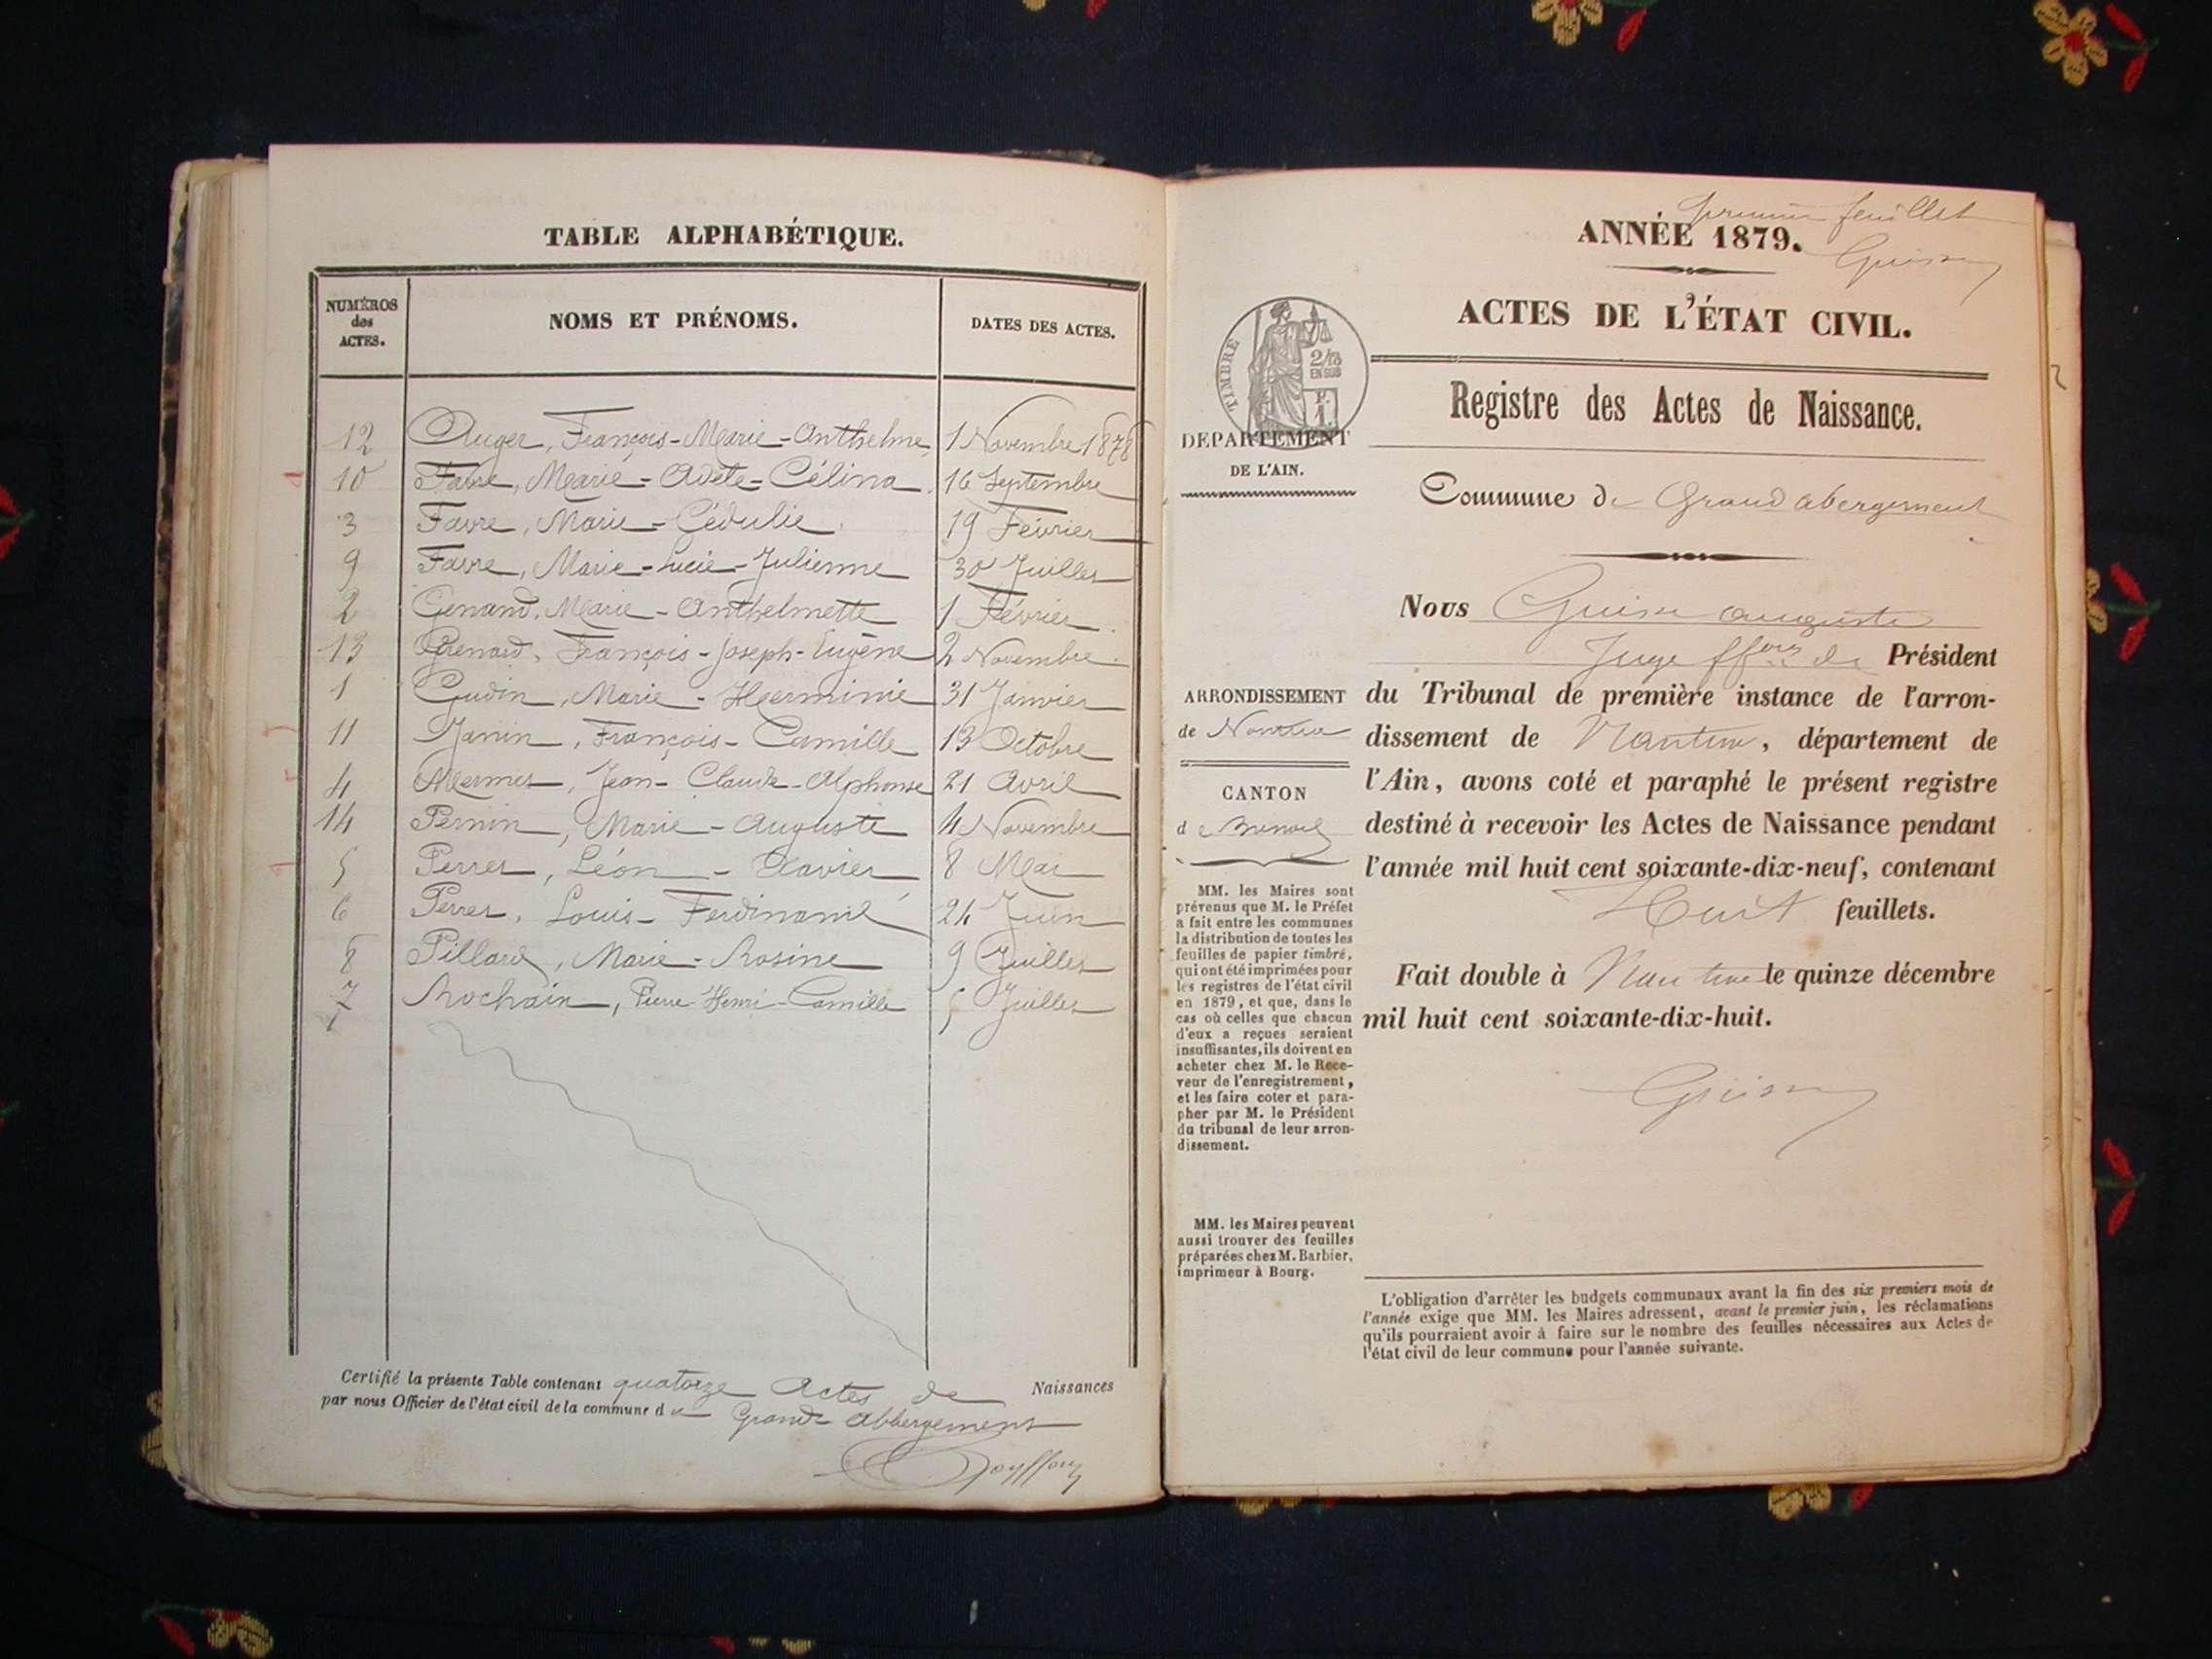 TABLE ALPHABÉTIQUE.
NUMÉROS des ACTES. NOMS ET PRÉNOMS. DATES DES ACTES.
12 Auger, François-Marie-Anthelme 1 Novembre 1878
10 Favre, Marie-Adèle-Célina 16 Septembre
3 Favre, Marie-Cédulie 19 Février
9 Favre, Marie-Lucie-Julienne 30 Juillet
2 Genand, Marie-Anthelmette 1 Février
13 Grenard, François-Joseph-Eugène 2 Novembre
1 Gudin, Marie-Herminie 31 Janvier
11 Janin, François-Camille 13 Octobre
4 Mermet, Jean-Claude-Alphonse 21 Avril
14 Pernin, Marie-Auguste 4 Novembre
5 Perret, Léon-Xavier 8 Mai
6 Perret, Louis-Ferdinand 24 Juin
8 Pillard, Marie-Rosine 9 Juillet
7 Rochaix, Pierre-Henri-Camille 5 Juillet
Certifié la présente Table contenant quatorze Actes de Naissances
par nous Officier de l'état civil de la commune de Grand Abbergement
premier feuillet
ANNÉE 1879.
ACTES DE L'ÉTAT CIVIL.
Registre des Actes de Naissance.
TIMBRE
2/10
EN SUS
DEPARTEMENT
DE L'AIN.
Commune de Grand abergement
Nous auguste
Juge ffons de Président
du Tribunal de première instance de l'arron-
dissement de Nantua, département de
l'Ain, avons coté et paraphé le présent registre
destiné à recevoir les Actes de Naissance pendant
l'année mil huit cent soixante-dix-neuf, contenant
Huit feuillets.
Fait double à Nantua le quinze décembre
mil huit cent soixante-dix-huit.
ARRONDISSEMENT
de Nantua
CANTON
de Brenod
MM. les Maires sont
prévenus que M. le Préfet
a fait entre les communes
la distribution de toutes les
feuilles de papier timbré,
qui ont été imprimées pour
les registres de l'état civil
en 1879, et que, dans le
cas où celles que chacun
d'eux a reçues seraient
insuffisantes, ils doivent en
acheter chez M. le Rece-
veur de l'enregistrement,
et les faire coter et para-
pher par M. le Président
du tribunal de leur arron-
dissement.
MM. les Maires peuvent
aussi trouver des feuilles
préparées chez M. Barbier,
imprimeur à Bourg.
L'obligation d'arrêter les budgets communaux avant la fin des six premiers mois de
l'année exige que MM. les Maires adressent, avant le premier juin, les réclamations
qu'ils pourraient avoir à faire sur le nombre des feuilles nécessaires aux Actes de
l'état civil de leur commune pour l'année suivante.